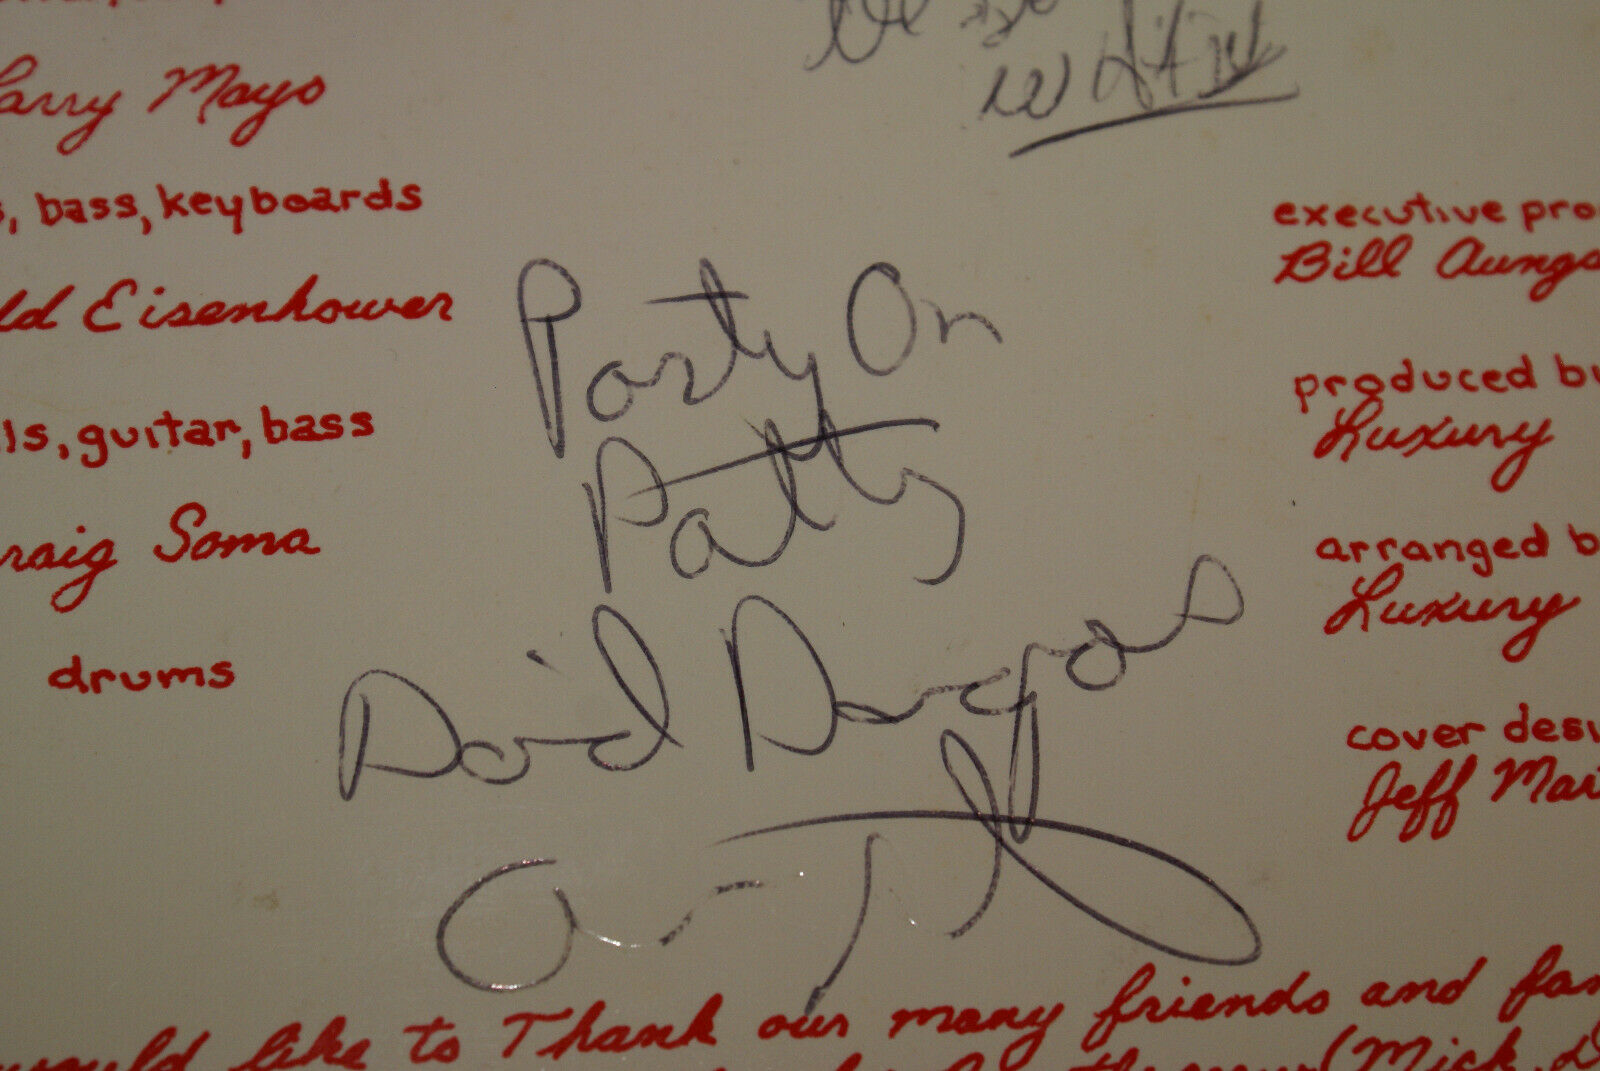 Larry Mayo
, bass, keyboards
ld Eisenhower
ls, guitar, bass
raig Soma
drums
Party On
Patty
David
executive pro
Bill Aungs
produced by
Luxury
arranged b
Luxury
cover desi
Jeff Mar
would like to Thank our many friends and fam
(Mick, D